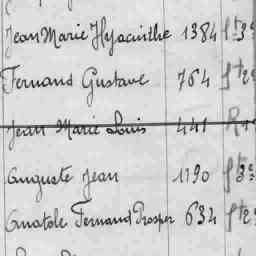 Jean Marie Hyacinthe 1384
Fernand Gustave 764
Jean Marie Louis 441
Auguste Jean 1190
Anatole Fernand Prosper 634